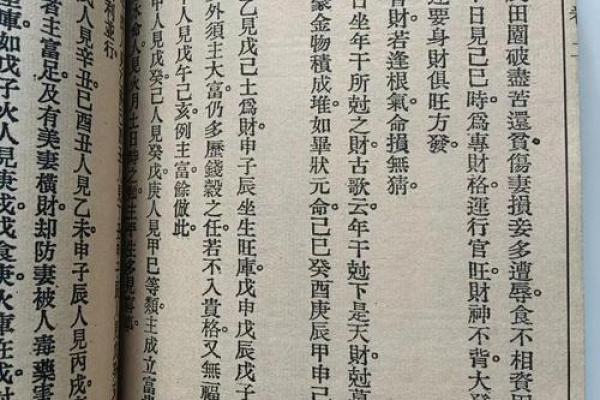 卷二
田園破盡苦還貧傷妻損妾多遭辱食不相資田
日見己巳時爲專財格運行官旺財神不背大發
運要身財俱旺方發。
財若逢根氣命損無猜
豪金物積成堆如畢狀元命己巳癸酉庚辰甲申己
坐年干所尅之財古歌云年干尅下是天財尅墓
見戊己土爲財申子辰坐生旺庫戊申戊辰戊子
外須主大富仍多歷錢穀之任若不入貴格又無福
人見戊午己亥例主富餘倣此。
人見戊癸己人見癸戊庚人見甲巳等類主成立富
利並行
人見辛丑巳酉丑人見乙未申子辰人見丙戌
者主富足及有美妻橫財却防妻被人毒藥害
庫如戊子火人見庚戌戌食庚火庫在戌